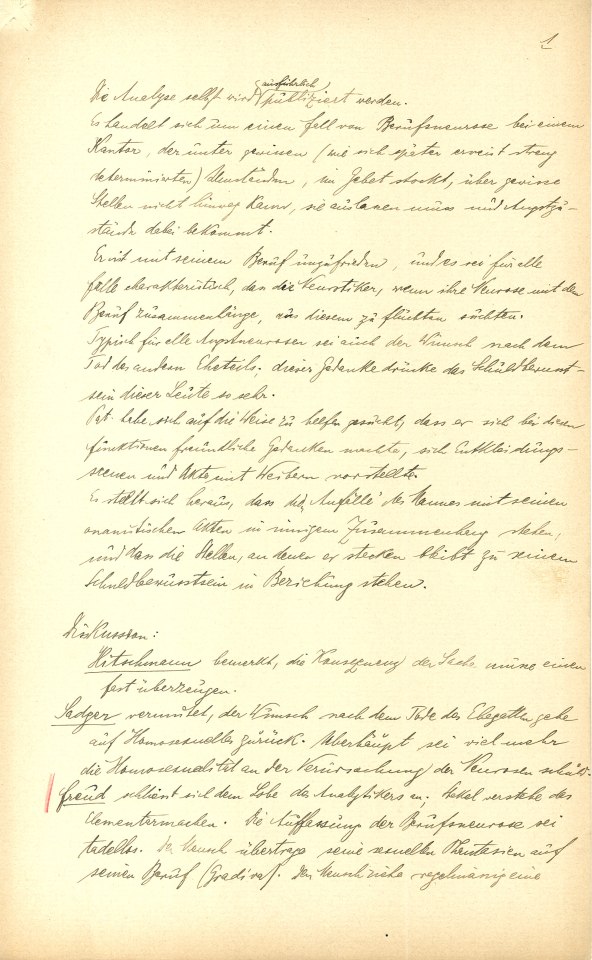 1
ausführlich
Die Analyse selbst wird publiziert werden.
Es handelt sich um einen Fall von Berufsneurose bei einem
Kantor, der unter gewissen (wie sich später erweist streng
determinierten) Umständen, im Gebet stockt, über gewisse
Stellen nicht hinweg kann, sie auslassen muss und Angstzu-
stände dabei bekommt.
Er ist mit seinem Beruf unzufrieden, und es sei für alle
Fälle charakteristisch, dass die Neurotiker, wenn ihre Neurose mit dem
Beruf zusammenhänge, aus diesem zu flüchten suchten.
Typisch für alle Angstneurosen sei auch der Wunsch nach dem
Tod des andern Eheteils. dieser Gedanke drücke das Schuldbewusst-
sein dieser Leute so sehr.
Pat. habe sich auf die Weise zu helfen gesucht, dass er sich bei diesen
Funktionen freundliche Gedanken machte, sich Entkleidungs-
scenen und Akte mit Weibern vorstellte.
Es stellt sich heraus, dass die Anfälle des Mannes mit seinen
onanistischen Akten in innigem Zusammenhang stehen,
und dass die Stellen, an denen er stecken bleibt zu seinem
Schuldbewusstsein in Beziehung stehen.
Diskussion:
Hitschmann bemerkt, die Konsequenz der Sache müsse einen
fast überzeugen.
Sadger vermutet, der Wunsch nach dem Tode des Ehegatten gehe
auf Homosexuelles zurück. Überhaupt sei viel mehr
die Homosexualität an der Verursachung der Neurosen schuld.
Freud schliesst sich dem Lobe des Analytikers an; Stekel verstehe das
Elementermachen. Die Auffassung der Berufsneurose sei
tadellos. Der Mensch übertrage seine sexuellen Phantasien auf
seinen Beruf (Gradiva). Der Mensch ziehe regelmässig eine